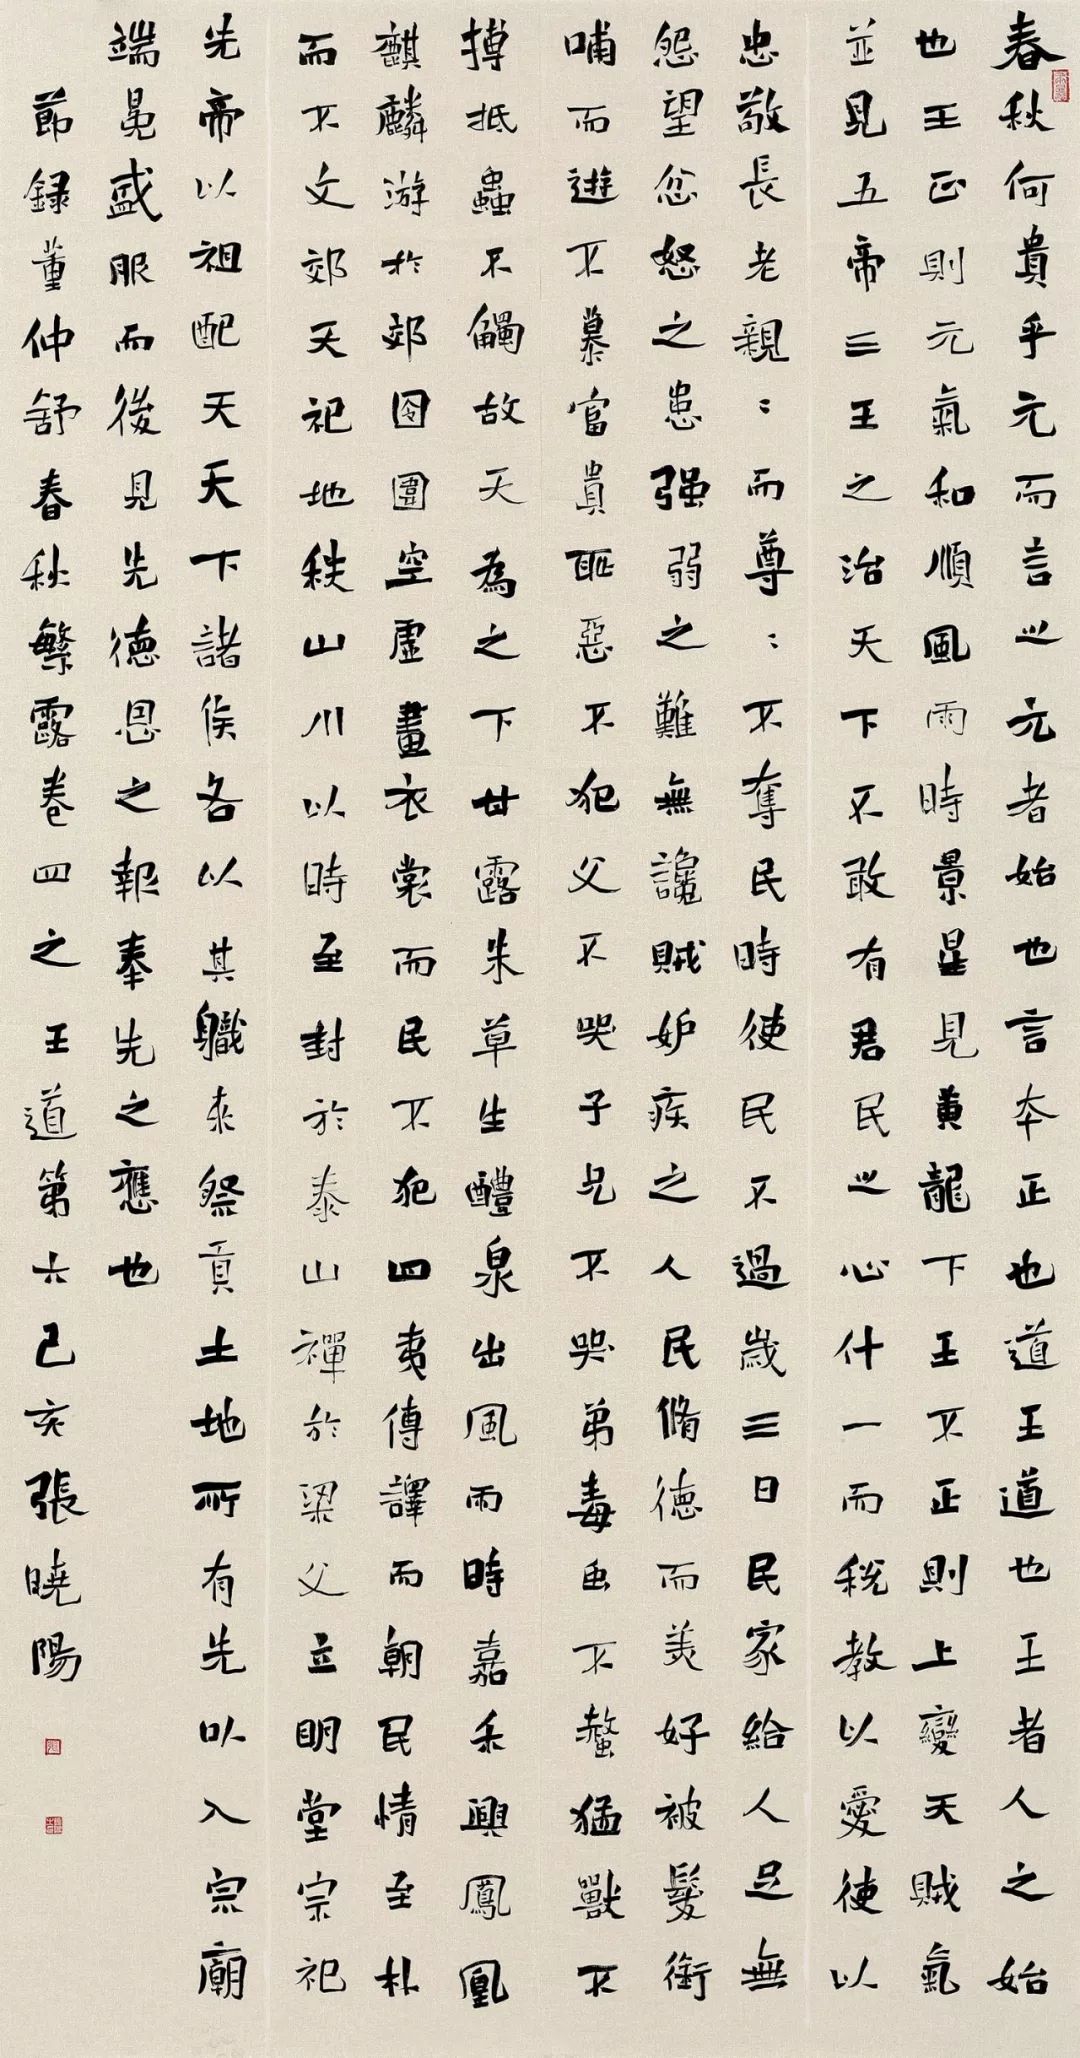 春秋何貴乎元而言之元者始也言本正也道王道也王者人之始
也王正則元氣和順風雨時景星見黄龍下王不正則上變天賊氣
並見五帝三王之治天下不敢有君民之心什一而税教以愛使以
忠敬長老親〻而尊〻不奪民時使民不過歲三日民家給人足無
怨望忿怒之患强弱之難無讒賊妒疾之人民脩德而美好被髮銜
哺而遊不慕富貴恥惡不犯父不哭子兄不哭弟毒虫不螫猛獸不
搏抵蟲不觸故天為之下甘露朱草生醴泉出風雨時嘉禾興鳳凰
麒麟游於郊囹圄空虛畫衣裳而民不犯四夷傳譯而朝民情至朴
而不文郊天祀地秩山川以時至封於泰山禪於梁父立明堂宗祀
先帝以祖配天天下諸侯各以其職來祭貢土地所有先以入宗廟
端冕盛服而後見先德恩之報奉先之應也
節録董仲舒春秋繁露卷四之王道第六己亥張曉陽